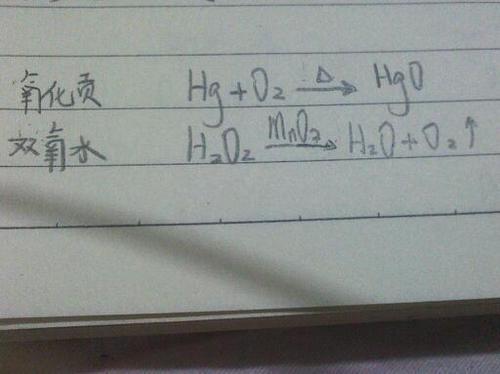 氧化贡 Hg + O₂ —Δ→ HgO
双氧水 H₂O₂ —MnO₂→ H₂O + O₂↑